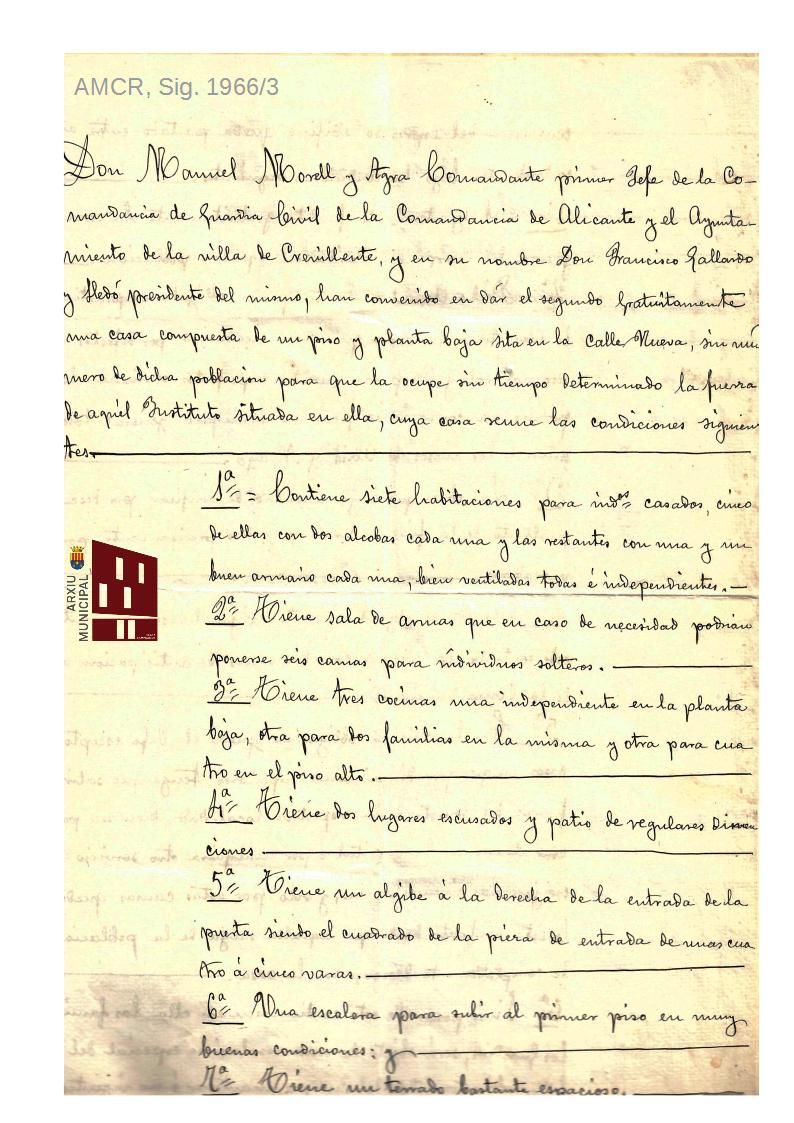 AMCR, Sig. 1966/3
Don Manuel Morell y Agra Comandante primer Jefe de la Co-
mandancia de Guardia Civil de la Comandancia de Alicante y el Ayunta-
miento de la villa de Crevillente, y en su nombre Don Francisco Gallardo
y Lledó presidente del mismo, han convenido en dár el segundo Gratuitamente
una casa compuesta de un piso y planta baja sita en la calle Nueva, sin nú
mero de dicha poblacion para que la ocupe sin tiempo determinado la fuerza
de aquél Instituto situada en ella, cuya casa reune las condiciones siguien
tes
1ª = Contiene siete habitaciones para indos casados, cinco
de ellas con dos alcobas cada una y las restantes con una y un
buen armario cada una, bien ventiladas todas é independientes.—
2ª Tiene sala de armas que en caso de necesidad podrian
ponerse seis camas para individuos solteros.
3ª Tiene tres cocinas una independiente en la planta
baja, otra para dos familias en la misma y otra para cua
tro en el piso alto.
4ª Tiene dos lugares escusados y patio de regulares dimen
ciones
5ª Tiene un algibe á la derecha de la entrada de la
puerta siendo el cuadrado de la pieza de entrada de unas cua
tro á cinco varas.
6ª Una escalera para subir al primer piso en muy
buenas condiciones: y
7ª Tiene un terrado bastante espacioso.
ARXIU
MUNICIPAL